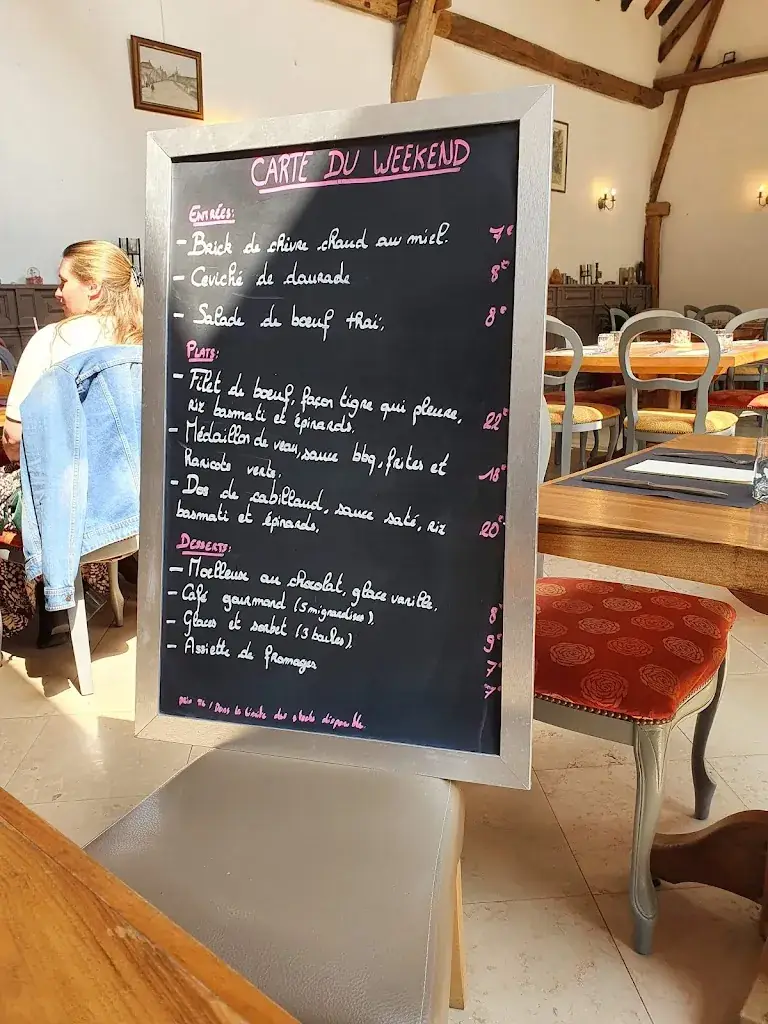 CARTE DU WEEKEND
ENTRÉES:
- Brick de chèvre chaud au miel. 7€
- Ceviché de daurade 8€
- Salade de boeuf thaï, 8€
PLATS:
- Filet de boeuf, façon tigre qui pleure,
riz basmati et épinards. 22€
- Médaillon de veau, sauce bbq, frites et
Haricots verts. 18€
- Dos de cabillaud, sauce saté, riz
basmati et épinards. 20€
DESSERTS:
- Moelleux au chocolat, glace vanille. 8€
- Café gourmand (5 mignardises). 9€
- Glaces et sorbet (3 boules). 7€
- Assiette de fromages 7€
prix TTC / Dans la limite des stocks disponible.